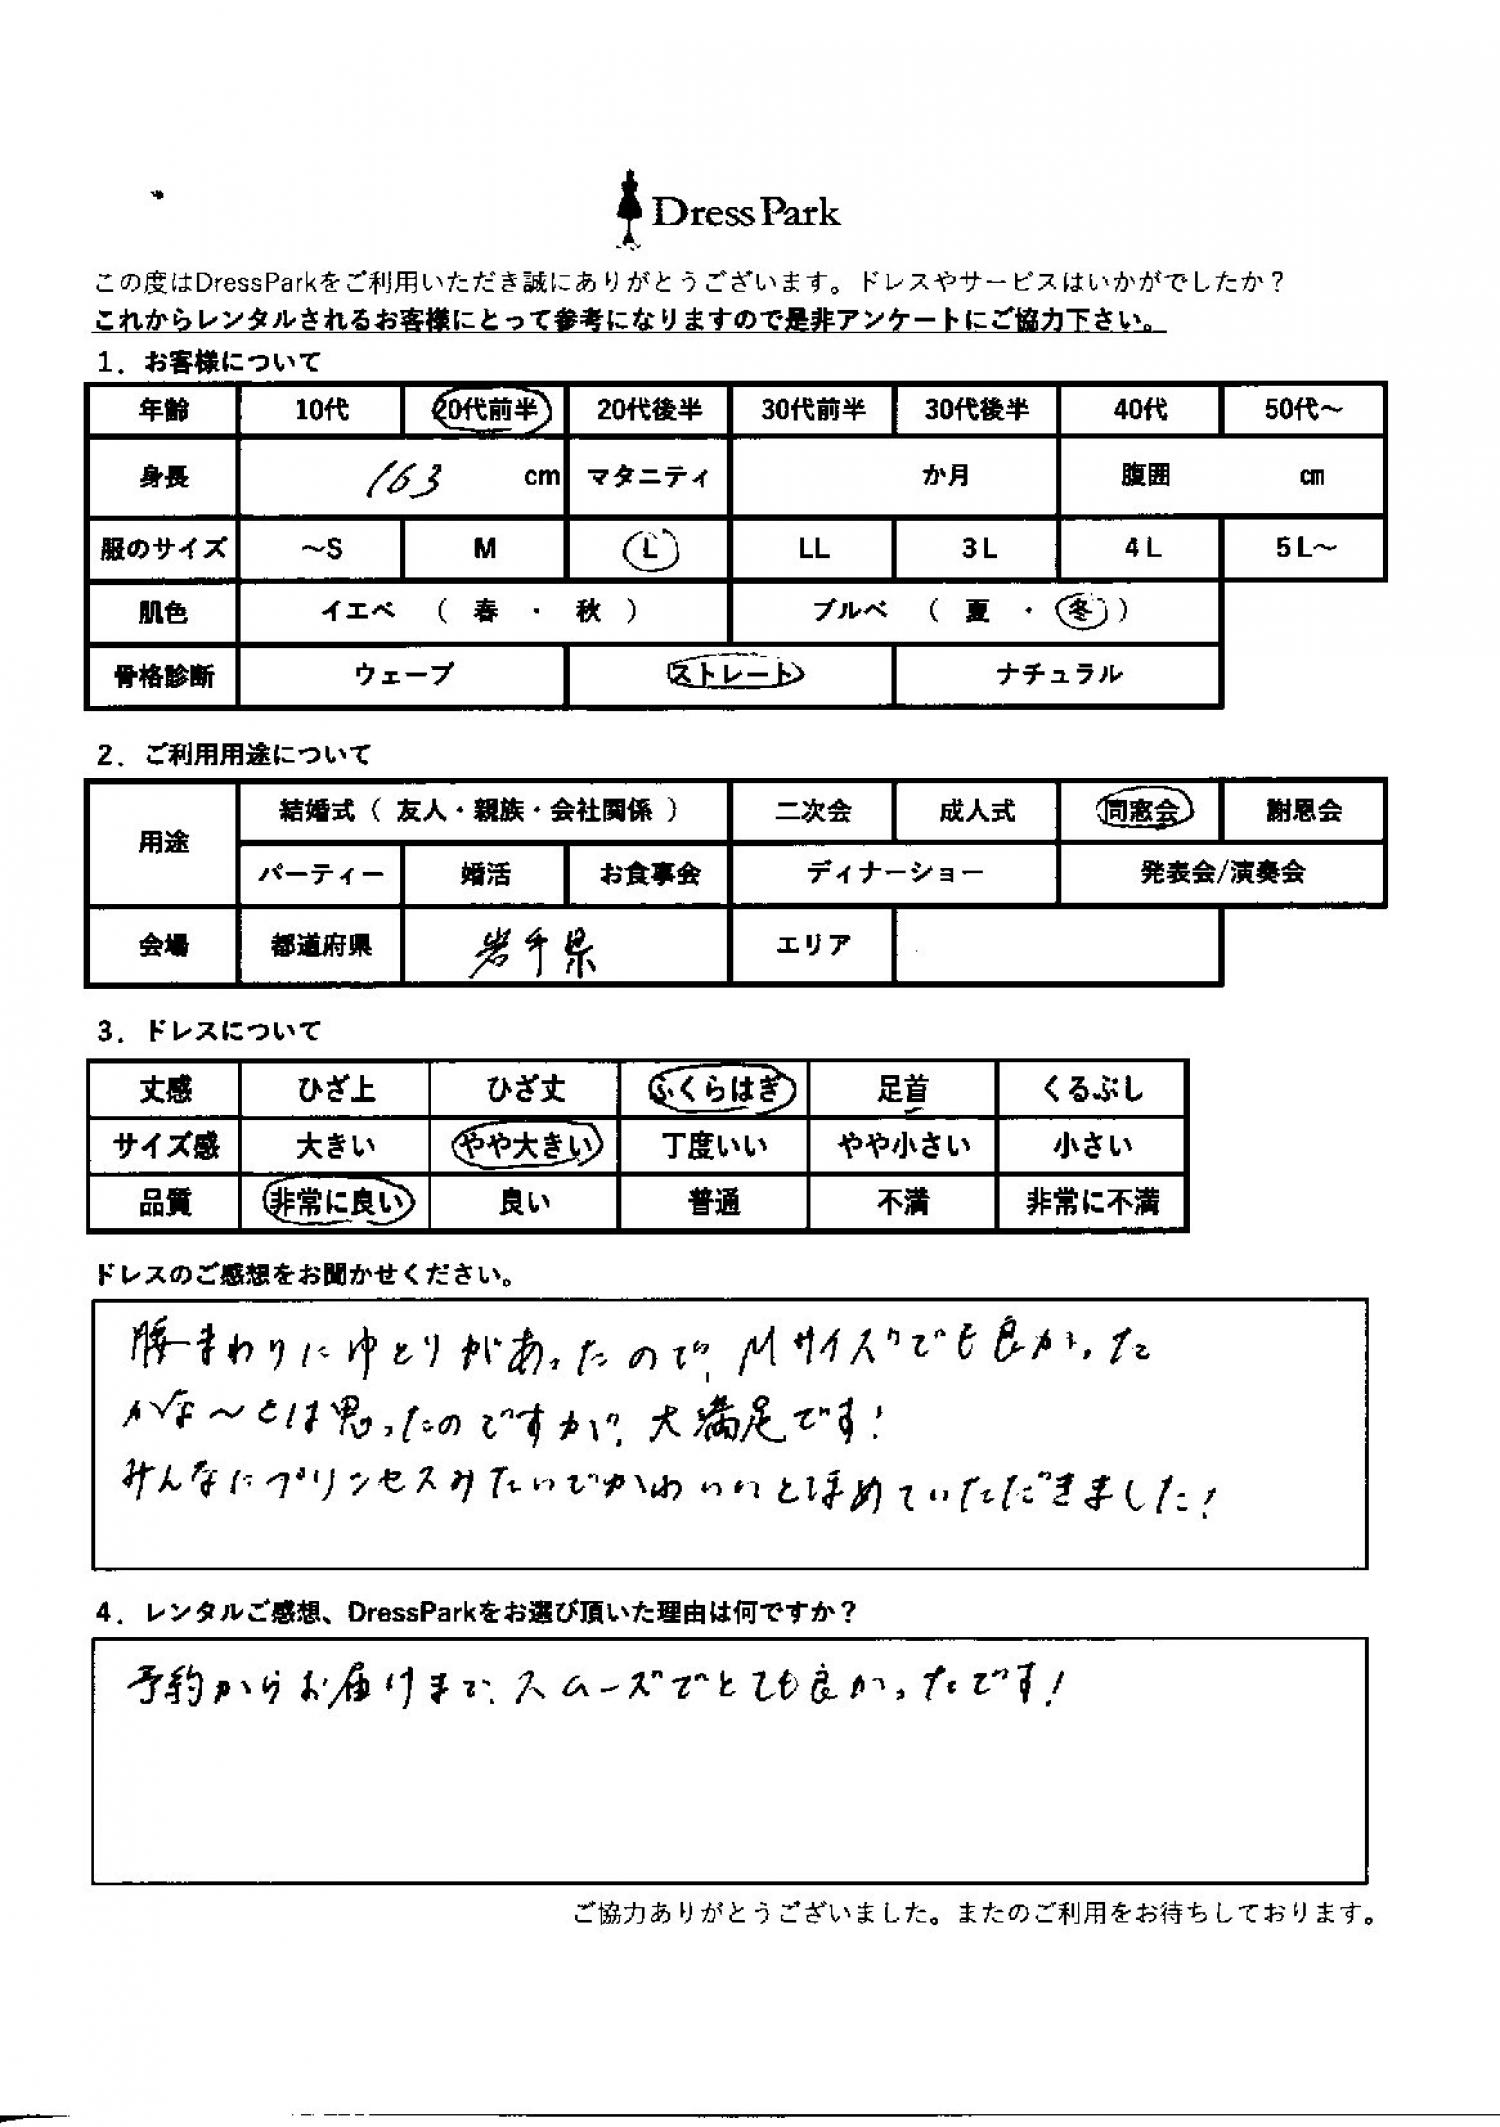 DressPark
この度はDressParkをご利用いただき誠にありがとうございます。ドレスやサービスはいかがでしたか？
これからレンタルされるお客様にとって参考になりますので是非アンケートにご協力下さい。
1．お客様について
年齢 10代 20代前半 20代後半 30代前半 30代後半 40代 50代～
身長 163 cm マタニティ か月 腹囲 ㎝
服のサイズ ～S M L LL 3L 4L 5L～
肌色 イエベ （ 春 ・ 秋 ） ブルベ （ 夏 ・ 冬 ）
骨格診断 ウェーブ ストレート ナチュラル
2．ご利用用途について
用途 結婚式（ 友人・親族・会社関係 ） 二次会 成人式 同窓会 謝恩会
パーティー 婚活 お食事会 ディナーショー 発表会/演奏会
会場 都道府県 岩手県 エリア
3．ドレスについて
丈感 ひざ上 ひざ丈 ふくらはぎ 足首 くるぶし
サイズ感 大きい やや大きい 丁度いい やや小さい 小さい
品質 非常に良い 良い 普通 不満 非常に不満
ドレスのご感想をお聞かせください。
腰まわりにゆとりがあったので、Mサイズでも良かった
かな～とは思ったのですが、大満足です！
みんなにプリンセスみたいでかわいいとほめていただきました！
4．レンタルご感想、DressParkをお選び頂いた理由は何ですか？
予約からお届けまで、スムーズでとても良かったです！
ご協力ありがとうございました。またのご利用をお待ちしております。